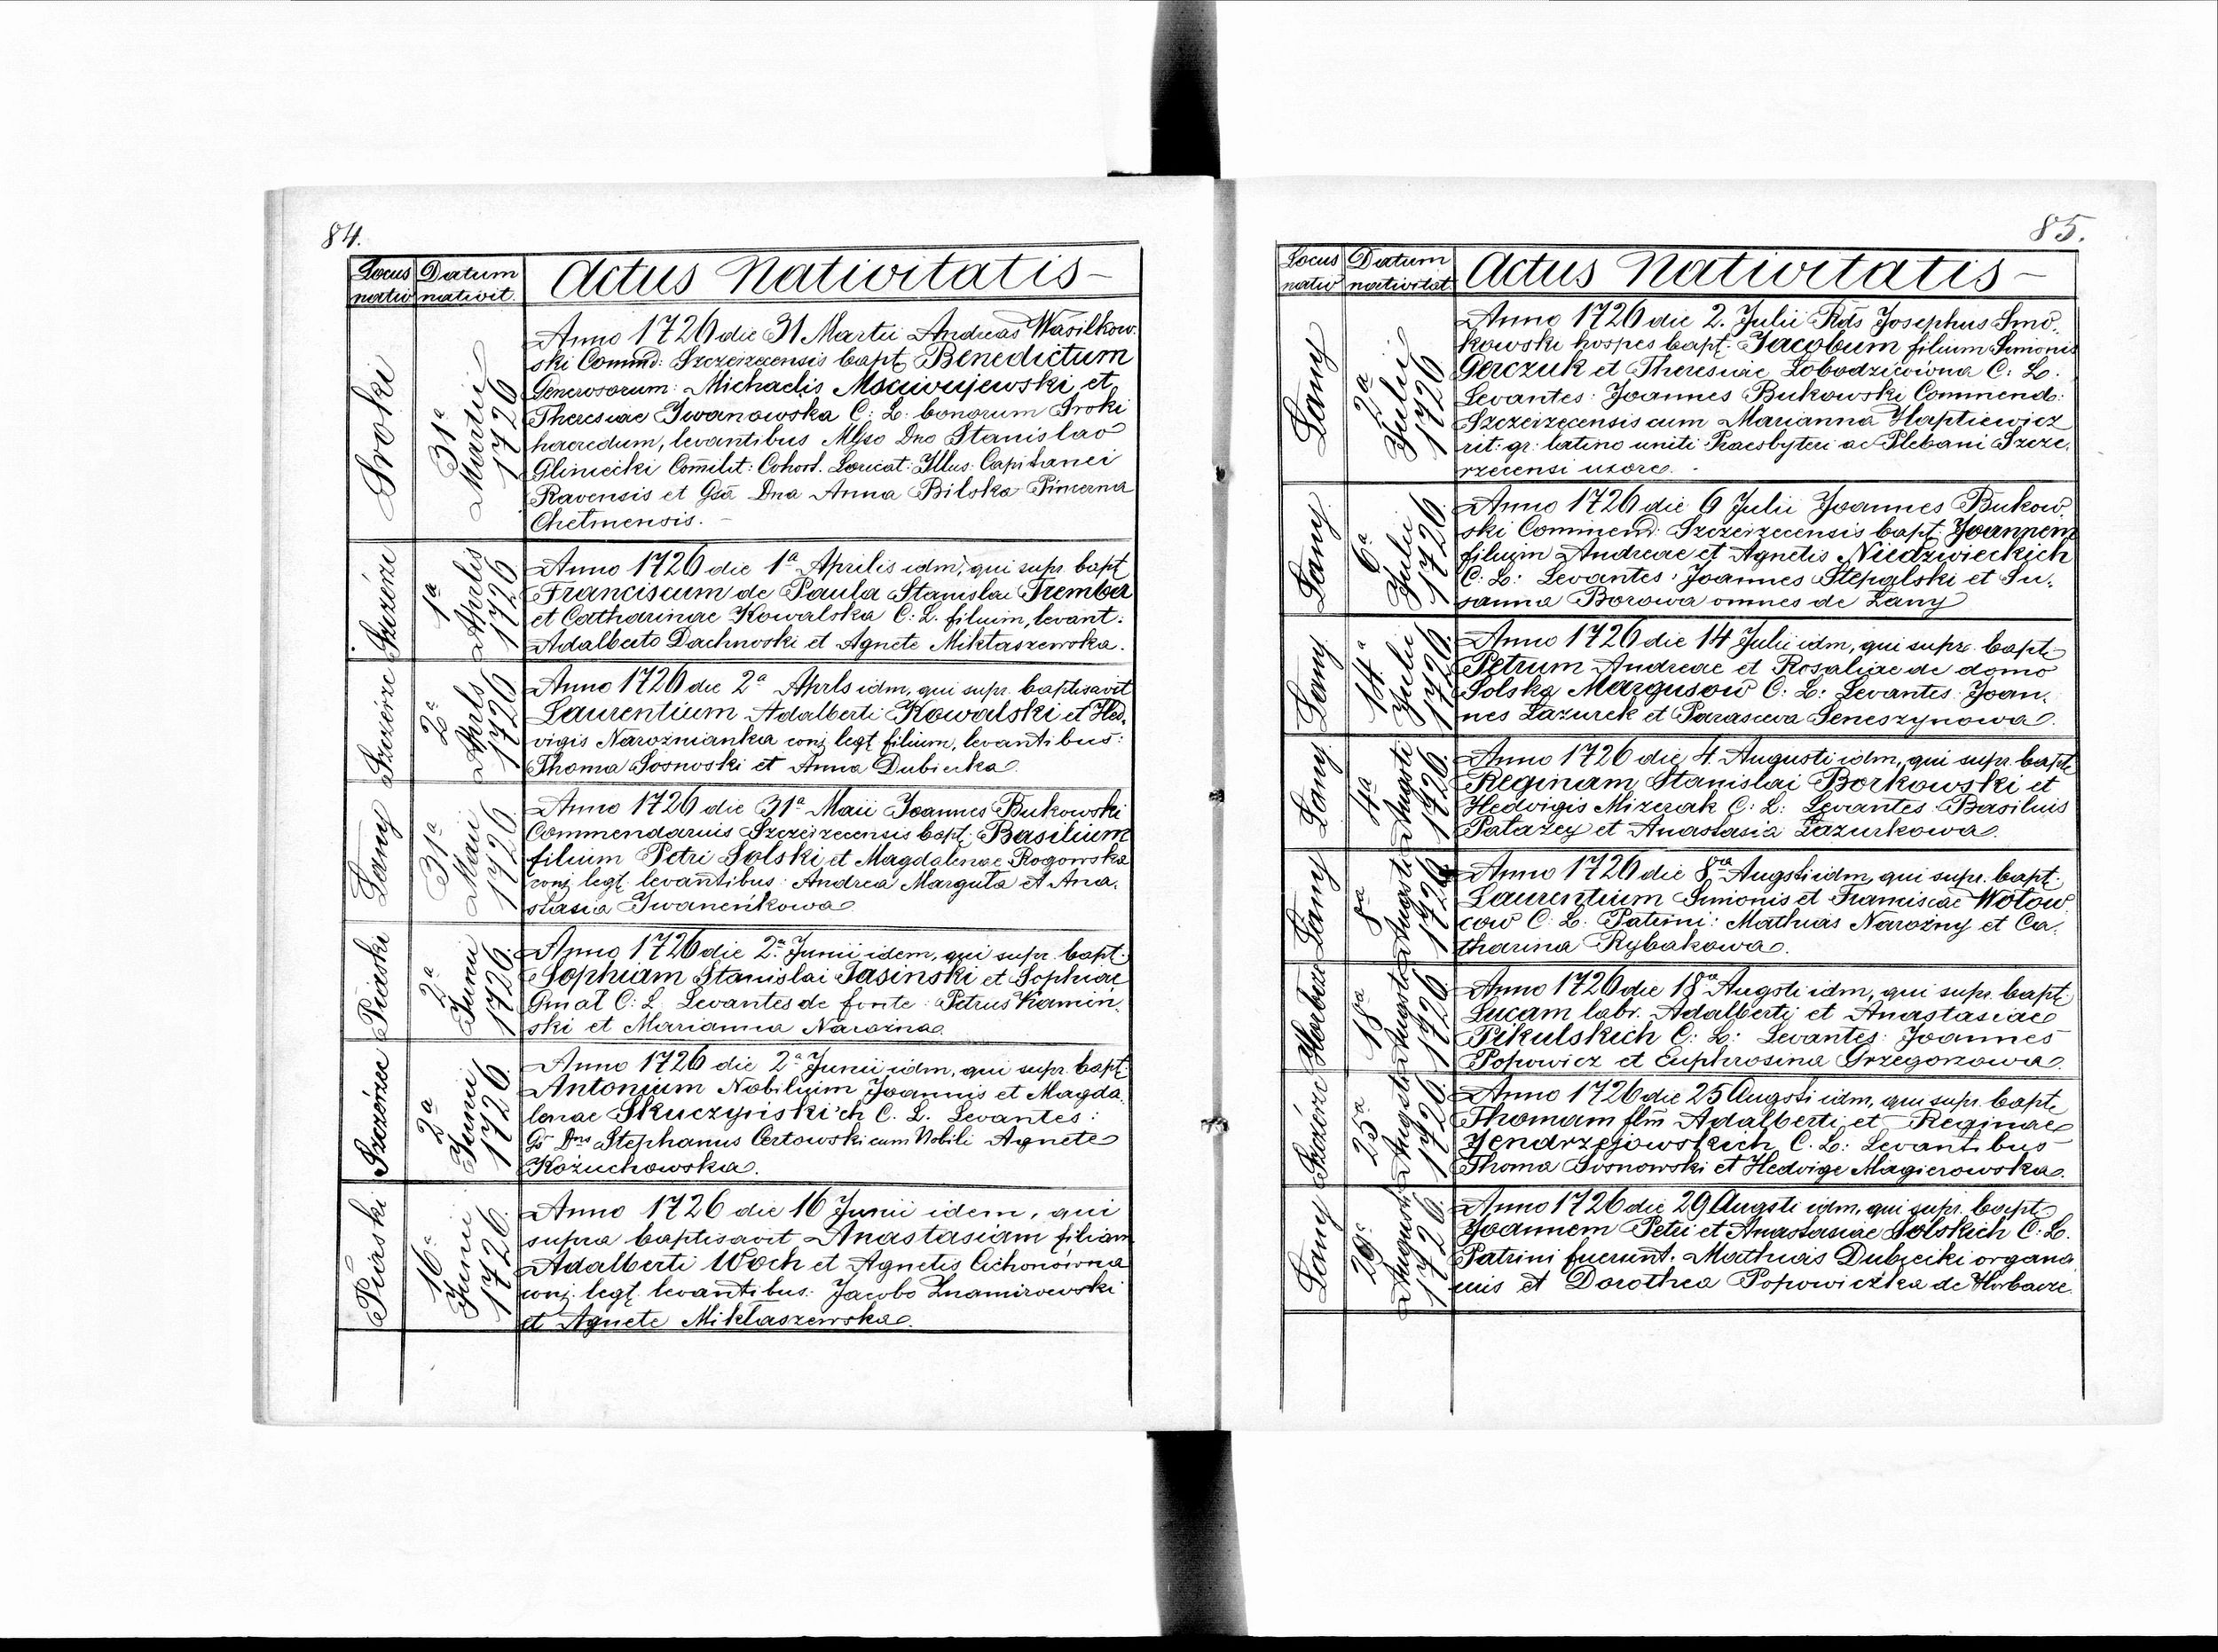 84.
Locus nativ
Datum nativit.
Actus Nativitatis
Sroki
31ª Martii 1726
Anno 1726 die 31 Martii Andreas Wasilkow.
ski Commd: Szczeizecensis bapt. Benedictum
Generosorum: Michaelis Msciwujewski et
Theresiae Iwanowska C: L: bonorum Sroki
haeredum, levantibus Mgso Dno Stanislao
Gliniecki Comilit: Cohort. Loricat: Illus: Capitanei
Ravensis et Gsa Dna Anna Bilska Pincerna
Chełmensis.
Szczérzec
1ª Aprlis 1726
Anno 1726 die 1ª Aprilis idm, qui supr. bapt
Franciscum de Paula Stanislai Trembea
et Catharinae Kowalska C: L. filium, levant:
Adalberto Dachnoski et Agnete Mikłaszewska.
Szczérze
2ª Aprls 1726
Anno 1726 die 2ª Aprls idm, qui supr. baptisavit
Laurentium Adalberti Kowalski et Hed.
vigis Naroznianka conj legt filium, levantibus:
Thoma Sosnoski et Anna Dubiecka.
Łany
31ª Maii 1726
Anno 1726 die 31ª Maii Joannes Bukowski
Commendarius Szczeizecensis bapt: Basilium
filium Petri Solski et Magdalenae Rogowska
conj legt. levantibus: Andrea Marguta et Ana.
stasia Iwaneńkowa
Piaski
2ª Junii 1726.
Anno 1726 die 2ª Junii idem, qui supr. bapt.
Sophiam Stanislai Jasinski et Sophiae
Gmat C: L. Levantes de fonte: Petrus Kamiń.
ski et Marianna Narożna.
Szczérzec
2ª Junii 1726
Anno 1726 die 2ª Junii idm, qui supr. bapt.
Antonium Nobilium Joannis et Magda.
lenae Skuczyńskich C. L. Levantes:
Gs Dns Stephanus Certowski cum Nobili Agnete
Kożuchowska.
Piaski
16ª Junii 1726.
Anno 1726 die 16 Junii idem, qui
supra baptisavit Anastasiam filiam
Adalberti Woch et Agnetis Cichonówna
conj. legt. levantibus: Jacobo Znamirowski
et Agnete Mikłaszewska.
85.
Locus nativ
Datum nativitat.
Actus Nativitatis
Łany
2ª Julii 1726
Anno 1726 die 2. Julii Rds Josephus Smo.
kowski hospes bapt. Jacobum filium Simonis
Gerczuk et Theresiae Łobodziówna C: L.
Levantes: Joannes Bukowski Commend:
Szczeizecensis cum Marianna Harptiewicz
rit: gr: latino uniti Praesbyteri ac Plebani Szcze.
rzecensi uxore.
Łany
6ª Julii 1726
Anno 1726 die 6 Julii Joannes Bukow.
ski Commend: Szczeizecensis bapt. Joannem
filium Andreae et Agnetis Niedzwieckich
C: L: Levantes: Joannes Stepalski et Su.
sanna Borowa omnes de Łany
Łany
14ª Julii 1726.
Anno 1726 die 14 Julii idm, qui supr. bapt.
Petrum Andreae et Rosaliae de domo
Solska Margusow C: L: Levantes: Joan.
nes Łazurek et Parasceva Seneszynowa.
Łany
4ª Augusti 1726.
Anno 1726 die 4 Augusti idm, qui supr. bapt.
Reginam Stanislai Borkowski et
Hedvigis Mizerak C: L: Levantes: Basilius
Patazey et Anastasia Łazurkowa.
Łany
8ª Augusti 1726
Anno 1726 die 8ª Augsti idm, qui supr. bapt.
Laurentium Simonis et Franciscae Wotow
cow C: L: Patrini: Mathias Narożny et Ca.
tharina Rybakowa.
Horbacze
18ª Augusti 1726
Anno 1726 die 18ª Augsti idm, qui supr. bapt.
Lucam labr. Adalberti et Anastasiae
Pikulskich C: L: Levantes: Joannes
Popowicz et Euphrosina Grzegorzowa.
Szczérzec
25ª Augusti 1726.
Anno 1726 die 25 Augsti idm, qui supr. bapt.
Thomam flm Adalberti et Reginae
Jendrzejowskich C. L: Levantibus
Thoma Sosnowski et Hedvige Magierowska.
Łany
29ª Augusti 1726.
Anno 1726 die 29 Augsti idm, qui supr. bapt.
Joannem Petri et Anastasiae Solskich C: L.
Patrini fuerunt: Mathias Dubiecki organa
nis et Dorothea Popowiczka de Horbacze.